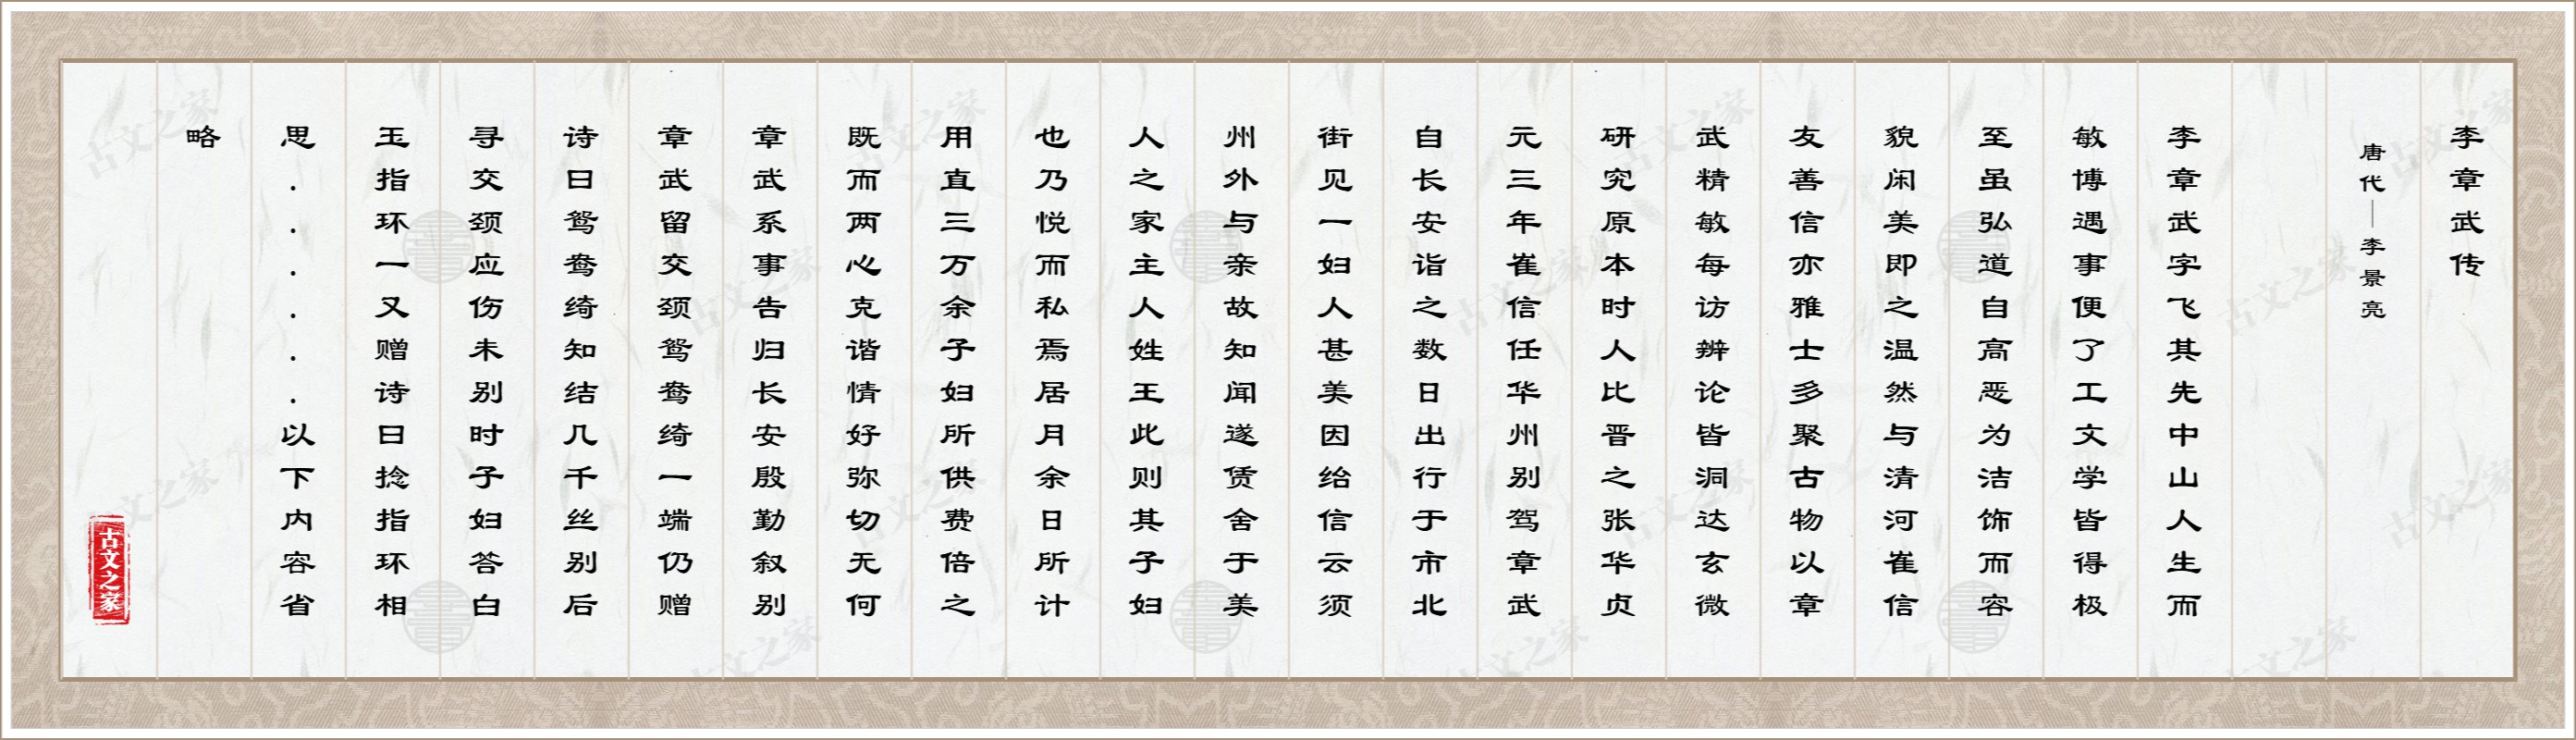 李章武传
唐代—李景亮
李章武字飞其先中山人生而
敏博遇事便了工文学皆得极
至虽弘道自高恶为洁饰而容
貌闲美即之温然与清河崔信
友善信亦雅士多聚古物以章
武精敏每访辨论皆洞达玄微
研究原本时人比晋之张华贞
元三年崔信任华州别驾章武
自长安诣之数日出行于市北
街见一妇人甚美因绐信云须
州外与亲故知闻遂赁舍于美
人之家主人姓王此则其子妇
也乃悦而私焉居月余日所计
用直三万余子妇所供费倍之
既而两心克谐情好弥切无何
章武系事告归长安殷勤叙别
章武留交颈鸳鸯绮一端仍赠
诗曰鸳鸯绮知结几千丝别后
寻交颈应伤未别时子妇答白
玉指环一又赠诗曰捻指环相
思......以下内容省
略
古文之家